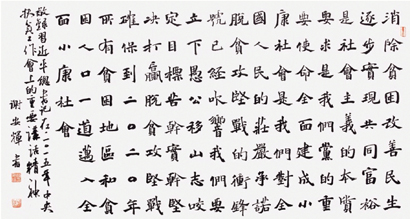 消除貧困改善民生
逐步實現共同富裕
是社會主義的本質
要求是我們黨的重
要使命全面建成小
康社會是我們對全
國人民的莊嚴承諾
脫貧攻堅戰的衝鋒
號已經吹響我們要
立下愚公移山志咬
定目標苦幹實幹堅
決打贏脫貧攻堅戰
確保到二〇二〇年
所有貧困地區和貧
困人口一道邁入全
面小康社會
敬錄習近平總書記在二〇一五年中央
扶貧工作會上的重要講話精神
謝安輝書